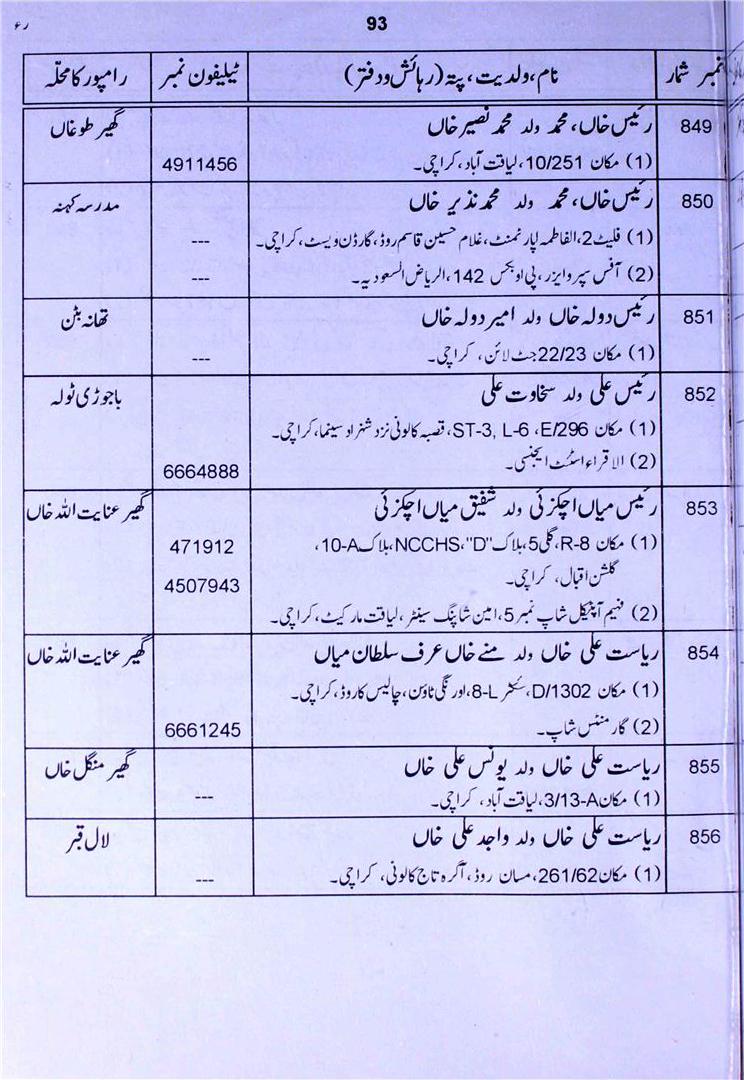 93
ر ۶
نمبر شمار	نام، ولدیت، پتہ (رہائش و دفتر)	ٹیلیفون نمبر	رامپور کا محلّہ
849	رئیس خاں، محمد ولد محمد نصیر خاں	گھیر طوغاں
(1) مکان 10/251، لیاقت آباد، کراچی۔	4911456
850	رئیس خاں، محمد ولد محمد نذیر خاں	مدرسہ کہنہ
(1) فلیٹ 2، الفاطمہ اپارٹمنٹ، غلام حسین قاسم روڈ، گارڈن ویسٹ، کراچی۔	---
(2) آفس سپروایزر، پی او بکس 142، الریاض السعودیہ۔	---
851	رئیس دولہ خاں ولد امیر دولہ خاں	تھانہ بٹن
(1) مکان 22/23 جٹ لائن، کراچی۔	---
852	رئیس علی ولد سخاوت علی	باجوڑی ٹولہ
(1) مکان E/296، ST-3, L-6، قصبہ کالونی نزد شہزاد سینما، کراچی۔
(2) الاقراء اسٹیٹ ایجنسی۔	6664888
853	رئیس میاں اچکزئی ولد شفیق میاں اچکزئی	گھیر عنایت اللہ خاں
(1) مکان R-8، گلی 5، بلاک "D"، NCCHS، بلاک 10-A،	471912
گلشن اقبال، کراچی۔	4507943
(2) فہیم آپٹیکل شاپ نمبر 5، امین شاپنگ سینٹر، لیاقت مارکیٹ، کراچی۔
854	ریاست علی خاں ولد منے خاں عرف سلطان میاں	گھیر عنایت اللہ خاں
(1) مکان D/1302، سیکٹر 8-L، اورنگی ٹاؤن، چالیس کا روڈ، کراچی۔
(2) گارمنٹس شاپ۔	6661245
855	ریاست علی خاں ولد یونس علی خاں	گھیر منگل خاں
(1) مکان 3/13-A، لیاقت آباد، کراچی۔	---
856	ریاست علی خاں ولد واجد علی خاں	لال قبر
(1) مکان 261/62، مسان روڈ، آگرہ تاج کالونی، کراچی۔	---